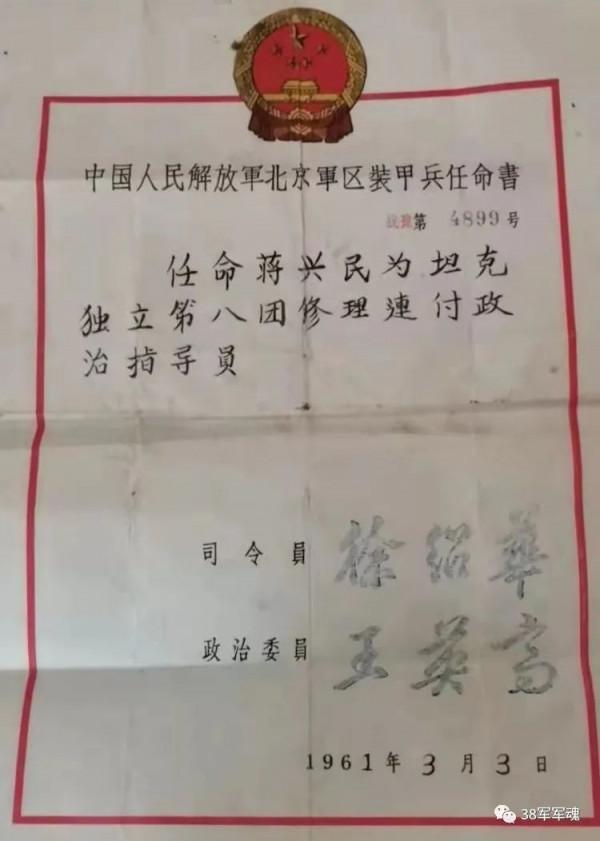 中国人民解放軍北京軍区裝甲兵任命書
战號第 4899 号
任命蒋兴民为坦克
独立第八团修理連付政
治指导員
司令員 徐绍華
政治委員 王英高
1961年3月3日
38军军魂